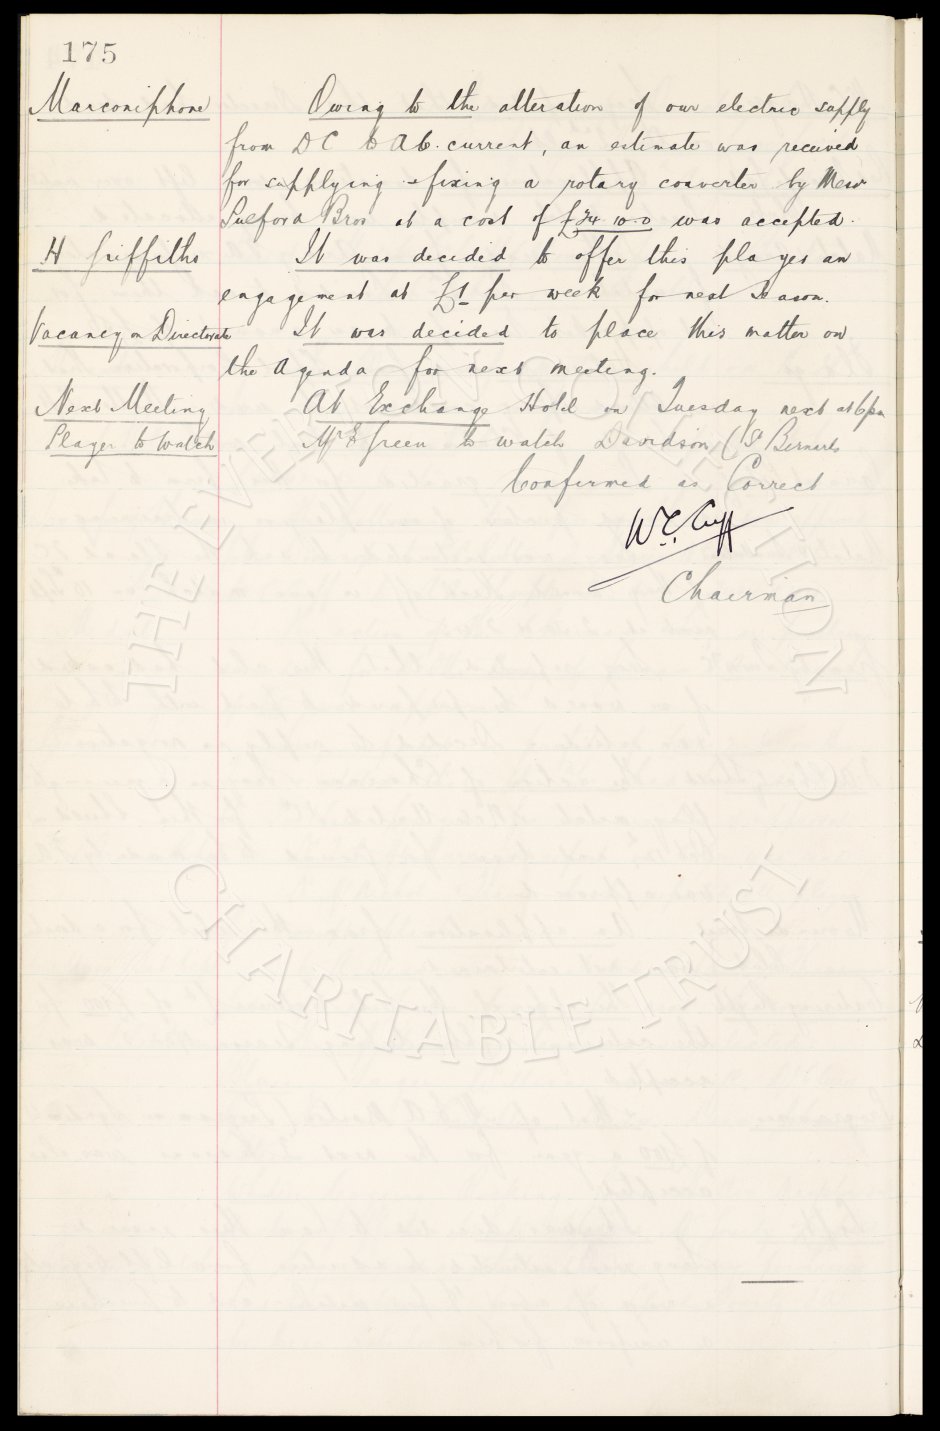 175
Marconiphone Owing to the alteration of our electric supply
from DC to A.C. current, an estimate was received
for supplying & fixing a rotary converter by Messrs
Bros at a cost of £24 10 0 was accepted.
H Griffiths It was decided to offer this player an
engagement at £1 per week for next season.
Vacancy on Directorate It was decided to place this matter on
the Agenda for next meeting.
Next Meeting At Exchange Hotel on Tuesday next at 6pm
Player to Watch Mr E Green to watch Davidson (St Bernards
Confirmed as Correct
W.C. Cuff
Chairman
THE EVERTON COLLECTION
CHARITABLE TRUST